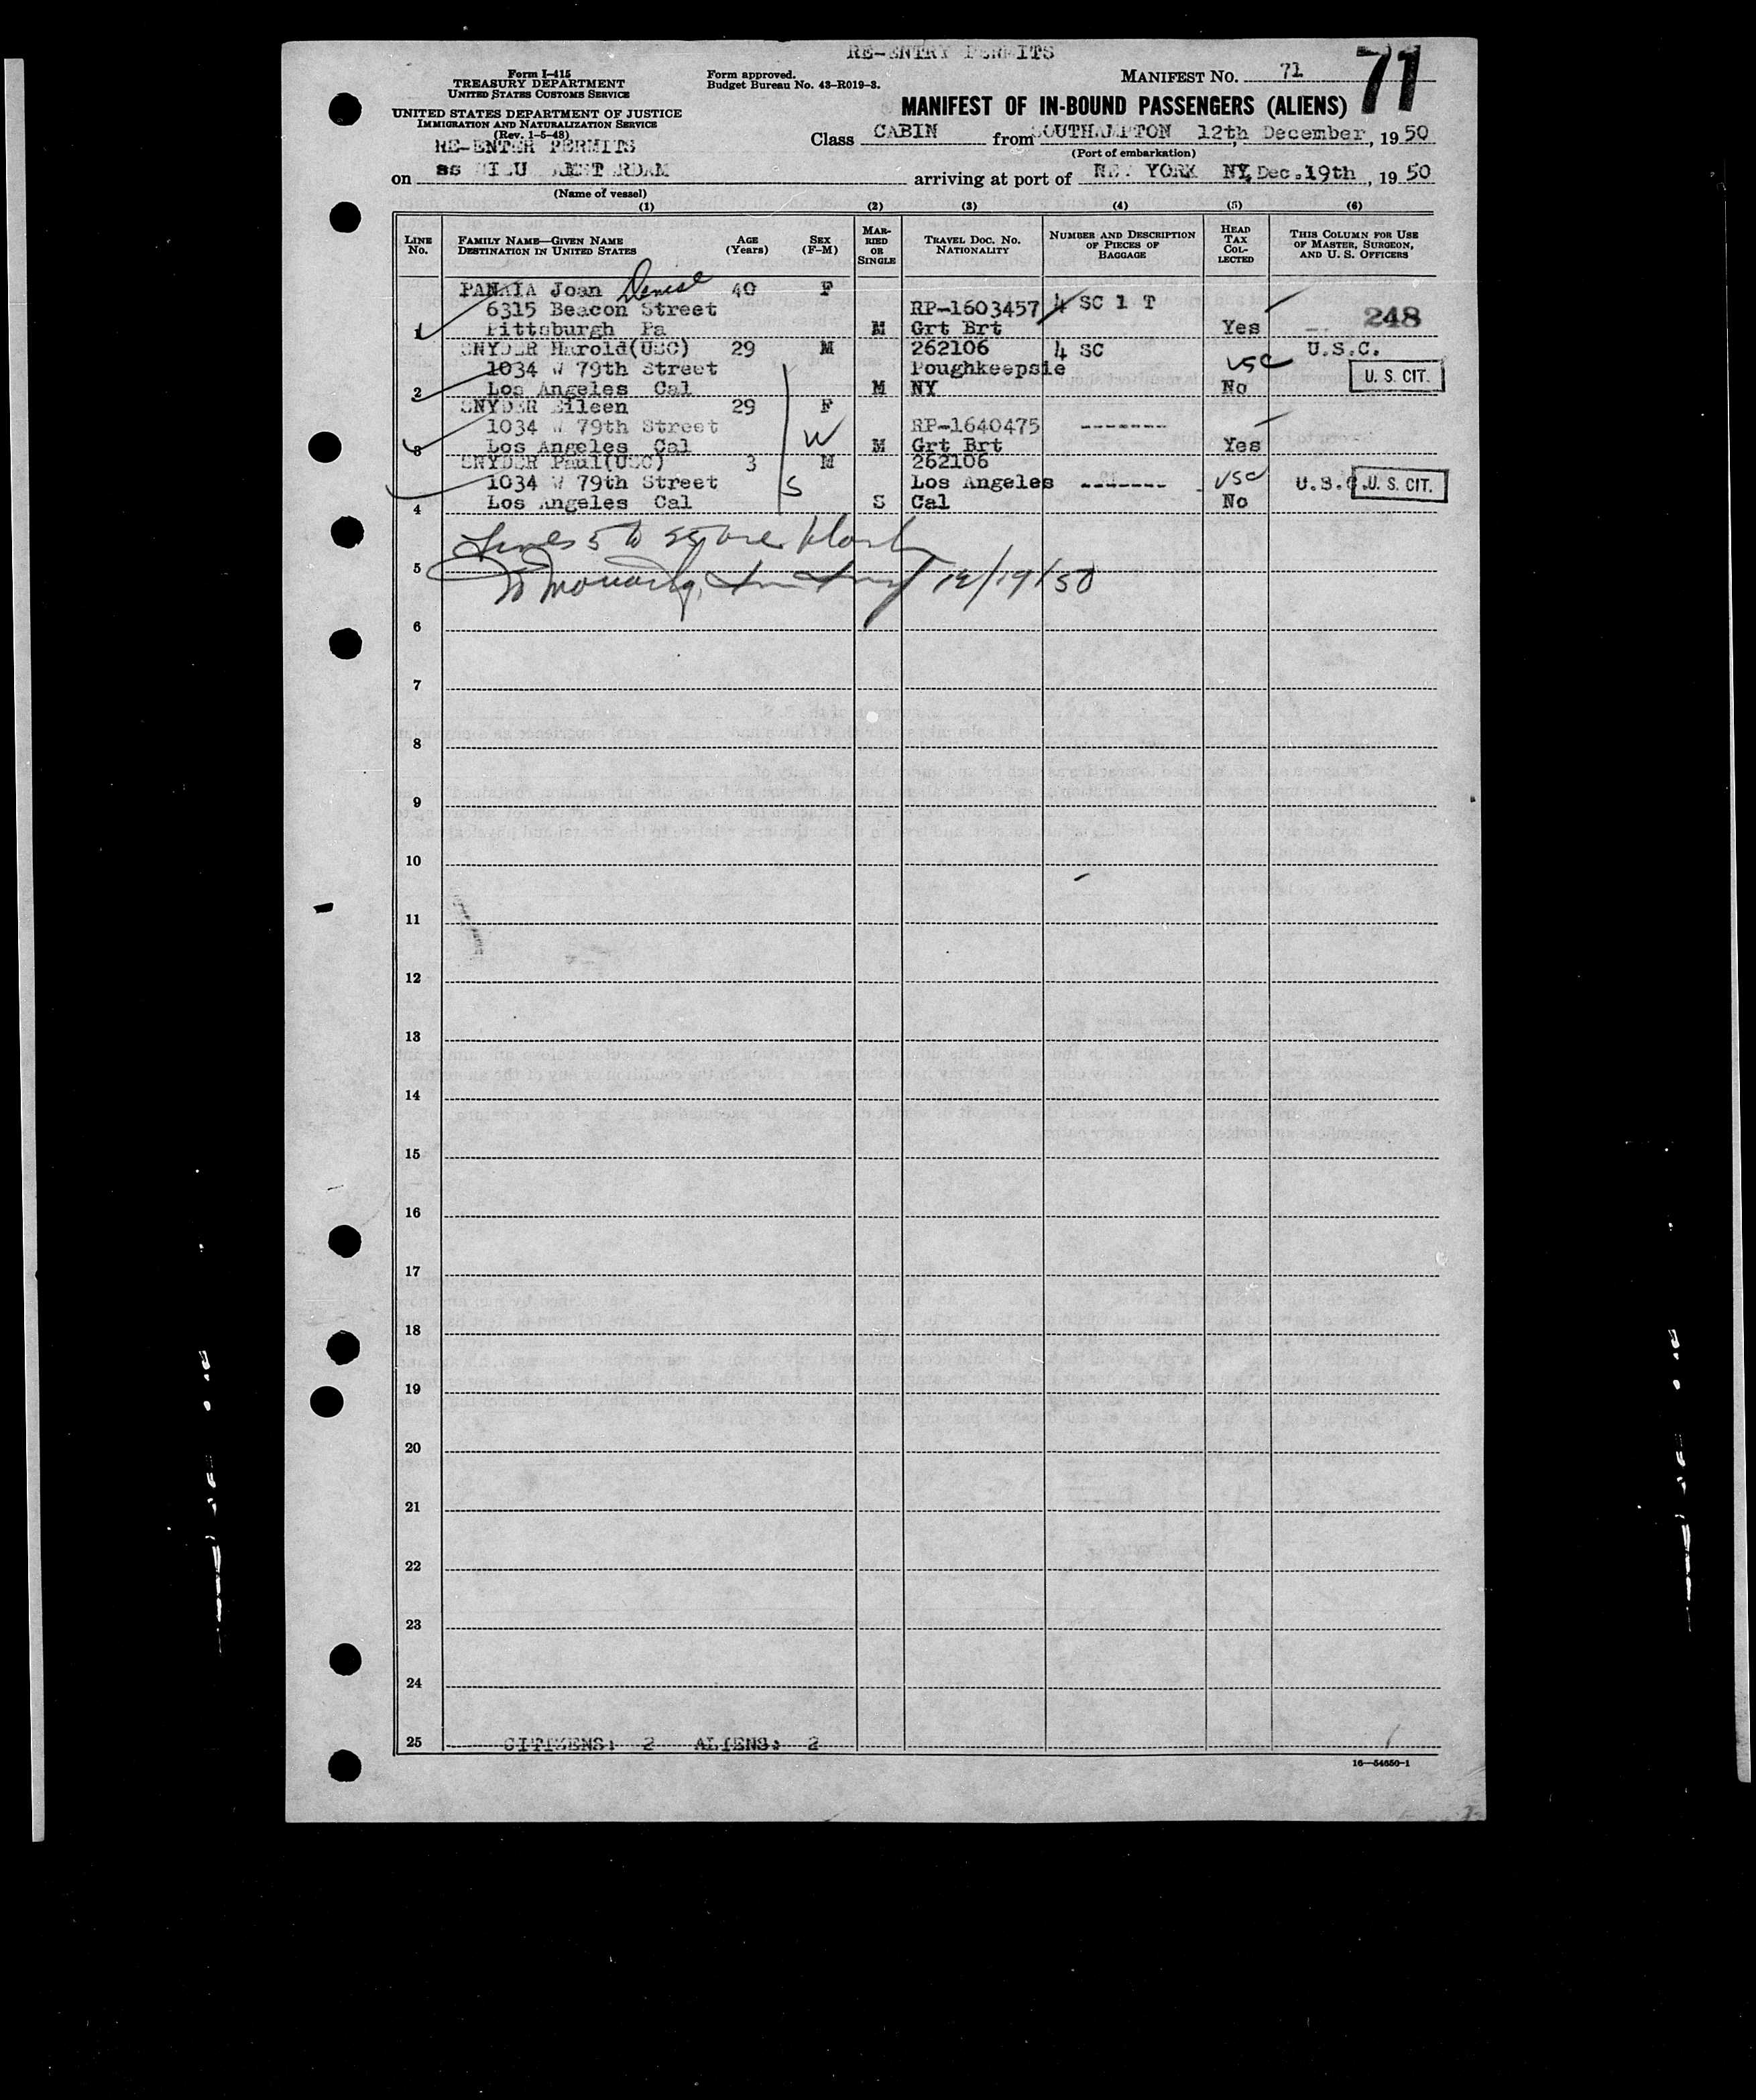 RE-ENTRY PERMITS
Form I-415
TREASURY DEPARTMENT
UNITED STATES CUSTOMS SERVICE
Form approved.
Budget Bureau No. 43-R019-3.
MANIFEST NO. 71
71
UNITED STATES DEPARTMENT OF JUSTICE
IMMIGRATION AND NATURALIZATION SERVICE
(Rev. 1-5-48)
MANIFEST OF IN-BOUND PASSENGERS (ALIENS)
RE-ENTER PERMITS
Class CABIN from SOUTHAMPTON 12th December, 1950
(Port of embarkation)
on ss NIEUW AMSTERDAM arriving at port of NEW YORK NY, Dec. 19th, 1950
(Name of vessel)
(1) (2) (3) (4) (5) (6)
LINE NO. FAMILY NAME—GIVEN NAME DESTINATION IN UNITED STATES AGE (Years) SEX (F-M) MARRIED OR SINGLE TRAVEL DOC. NO. NATIONALITY NUMBER AND DESCRIPTION OF PIECES OF BAGGAGE HEAD TAX COLLECTED THIS COLUMN FOR USE OF MASTER, SURGEON, AND U. S. OFFICERS
PANAIA Joan Denise 40 F
6315 Beacon Street RP-1603457 4 SC 1 T 248
1 Pittsburgh Pa M Grt Brt Yes
SNYDER Harold(USC) 29 M 262106 4 SC U.S.C.
1034 W 79th Street Poughkeepsie USC U. S. CIT.
2 Los Angeles Cal M NY No
SNYDER Eileen 29 F
1034 W 79th Street W RP-1640475 -------
3 Los Angeles Cal M Grt Brt Yes
SNYDER Paul(USC) 3 M 262106
1034 W 79th Street S Los Angeles ------- USC U.S.C. U. S. CIT.
4 Los Angeles Cal S Cal No
Lines 5 to 25 are blank
5
12/19/50
6
7
8
9
10
11
12
13
14
15
16
17
18
19
20
21
22
23
24
25 CITIZENS: 2 ALIENS: 2
16—54650-1